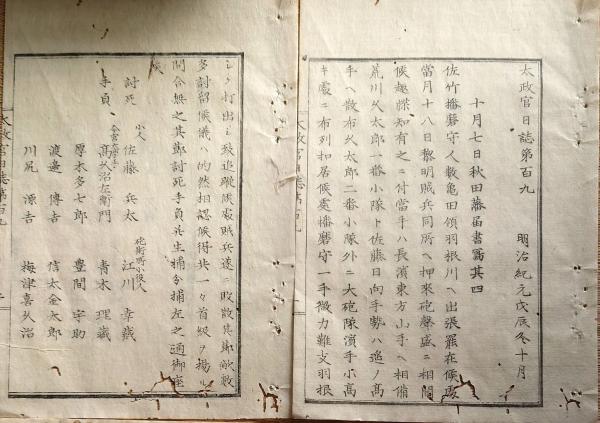 太政官日誌第百九
明治紀元戊辰冬十月
十月七日秋田藩届書寫其四
佐竹播磨守人數亀田領羽根川ヘ出張罷在候處
當月十八日黎明賊兵同所ヘ押來砲聲盛ニ相聞
候趣探知有之ニ付當手ハ長濱東方山手ヘ相備
荒川久太郎一番小隊ト佐藤日向手勢ハ巡ノ高
手ヘ散布久太郎二番小隊外ニ大砲隊濱手小高
キ處ニ布列扣居候處播磨守一手微力難支羽根
ヨリ打出シ致追蹤候處賊兵遂ニ敗散其節敵數
多討留候儀ハ的然相認候得共一々首級ヲ揚ル
間合無之其節討死手負并生捕分捕左之通御座
候
討死 小人 佐藤兵太 砲術所小役人 江川幸蔵
手負 高久治左衛門 青木理蔵
厚木多七郎 豊間宇助
渡邉傳吉 信太金太郎
川尻源吉 梅津喜久治
太政官日誌第百九